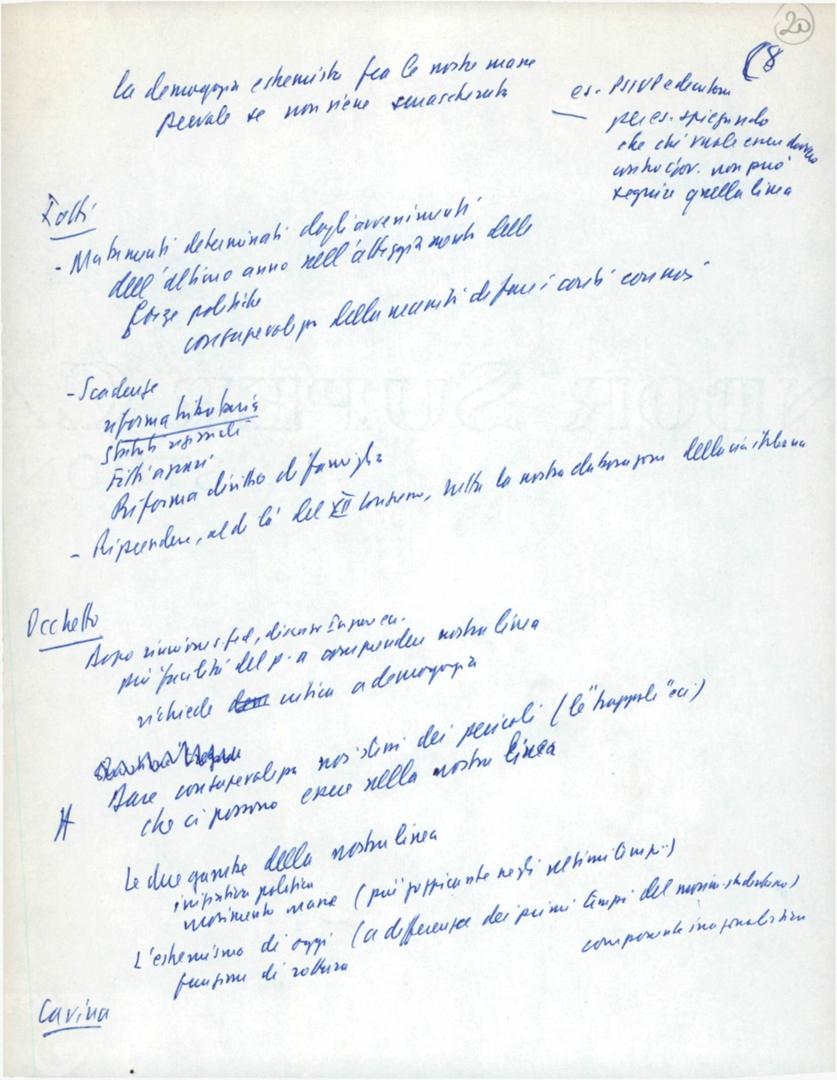 20
(8
la demagogia estremista fra le nostre masse
prevale se non viene smascherata
es. PSIUP e
per es. spiegando
che chi vuole
non può
seguire quella linea
Fatti
- Mutamenti determinati dagli avvenimenti
dell'ultimo anno nell'atteggiamento delle
forze politiche
consapevolezza della necessità di fare i conti con noi
- Scadenze
riforma tributaria
Statuti regionali
Fitti agrari
Riforma diritto di famiglia
- Riprendere, al di là del XII Congresso, tutta la nostra elaborazione della via italiana
Occhetto
Dopo riunione
più facilità del p. a comprendere nostra linea
richiede critica a demagogia
Dare consapevolezza dei pericoli (le "trappole" ecc)
che ci possono essere nella nostra linea
Le due gambe della nostra linea
iniziativa politica
movimento masse (più negli ultimi tempi)
L'estremismo di oggi (a differenza dei primi tempi del movim. studentesco)
componente irrazionalistica
funzione di rottura
Cavina